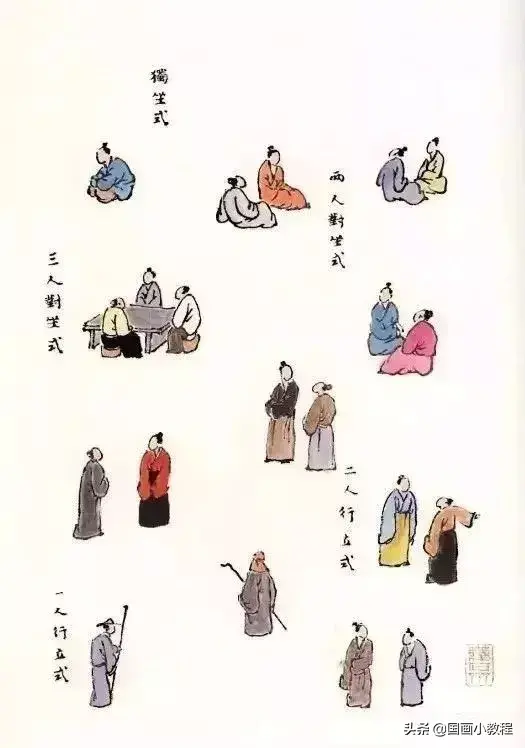 獨坐式
兩人對坐式
三人對坐式
二人行立式
一人行立式
头条 @国画小教程